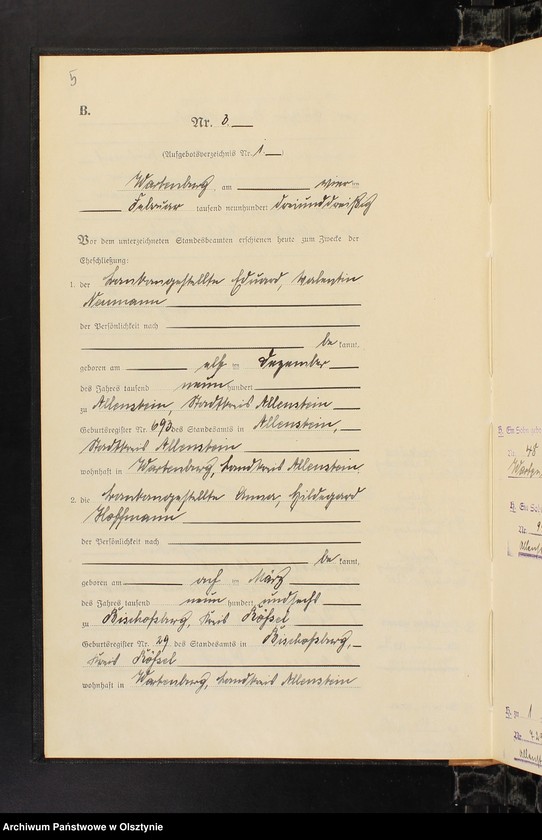 5
B.
Nr. 3.
(Aufgebotsverzeichnis Nr. 1.)
Wartenburg, am vier ten
Februar tausend neunhundert dreiunddreißig
Vor dem unterzeichneten Standesbeamten erschienen heute zum Zwecke der
Eheschließung:
1. der Bankangestellte Eduard, Valentin
Neumann
der Persönlichkeit nach
be kannt,
geboren am elf ten Dezember
des Jahres tausend neun hundert
zu Allenstein, Stadtkreis Allenstein
Geburtsregister Nr. 693 des Standesamts in Allenstein,
Stadtkreis Allenstein
wohnhaft in Wartenburg, Landkreis Allenstein,
2. die Bankangestellte Anna, Hildegard
Hoffmann
der Persönlichkeit nach
be kannt,
geboren am ach ten März
des Jahres tausend neun hundert undsechs
zu Bischofsburg, Kreis Rößel
Geburtsregister Nr. 29 des Standesamts in Bischofsburg,
Kreis Rößel
wohnhaft in Wartenburg, Landkreis Allenstein
Nr. 48
Nr.
1
Nr. 72
Archiwum Państwowe w Olsztynie